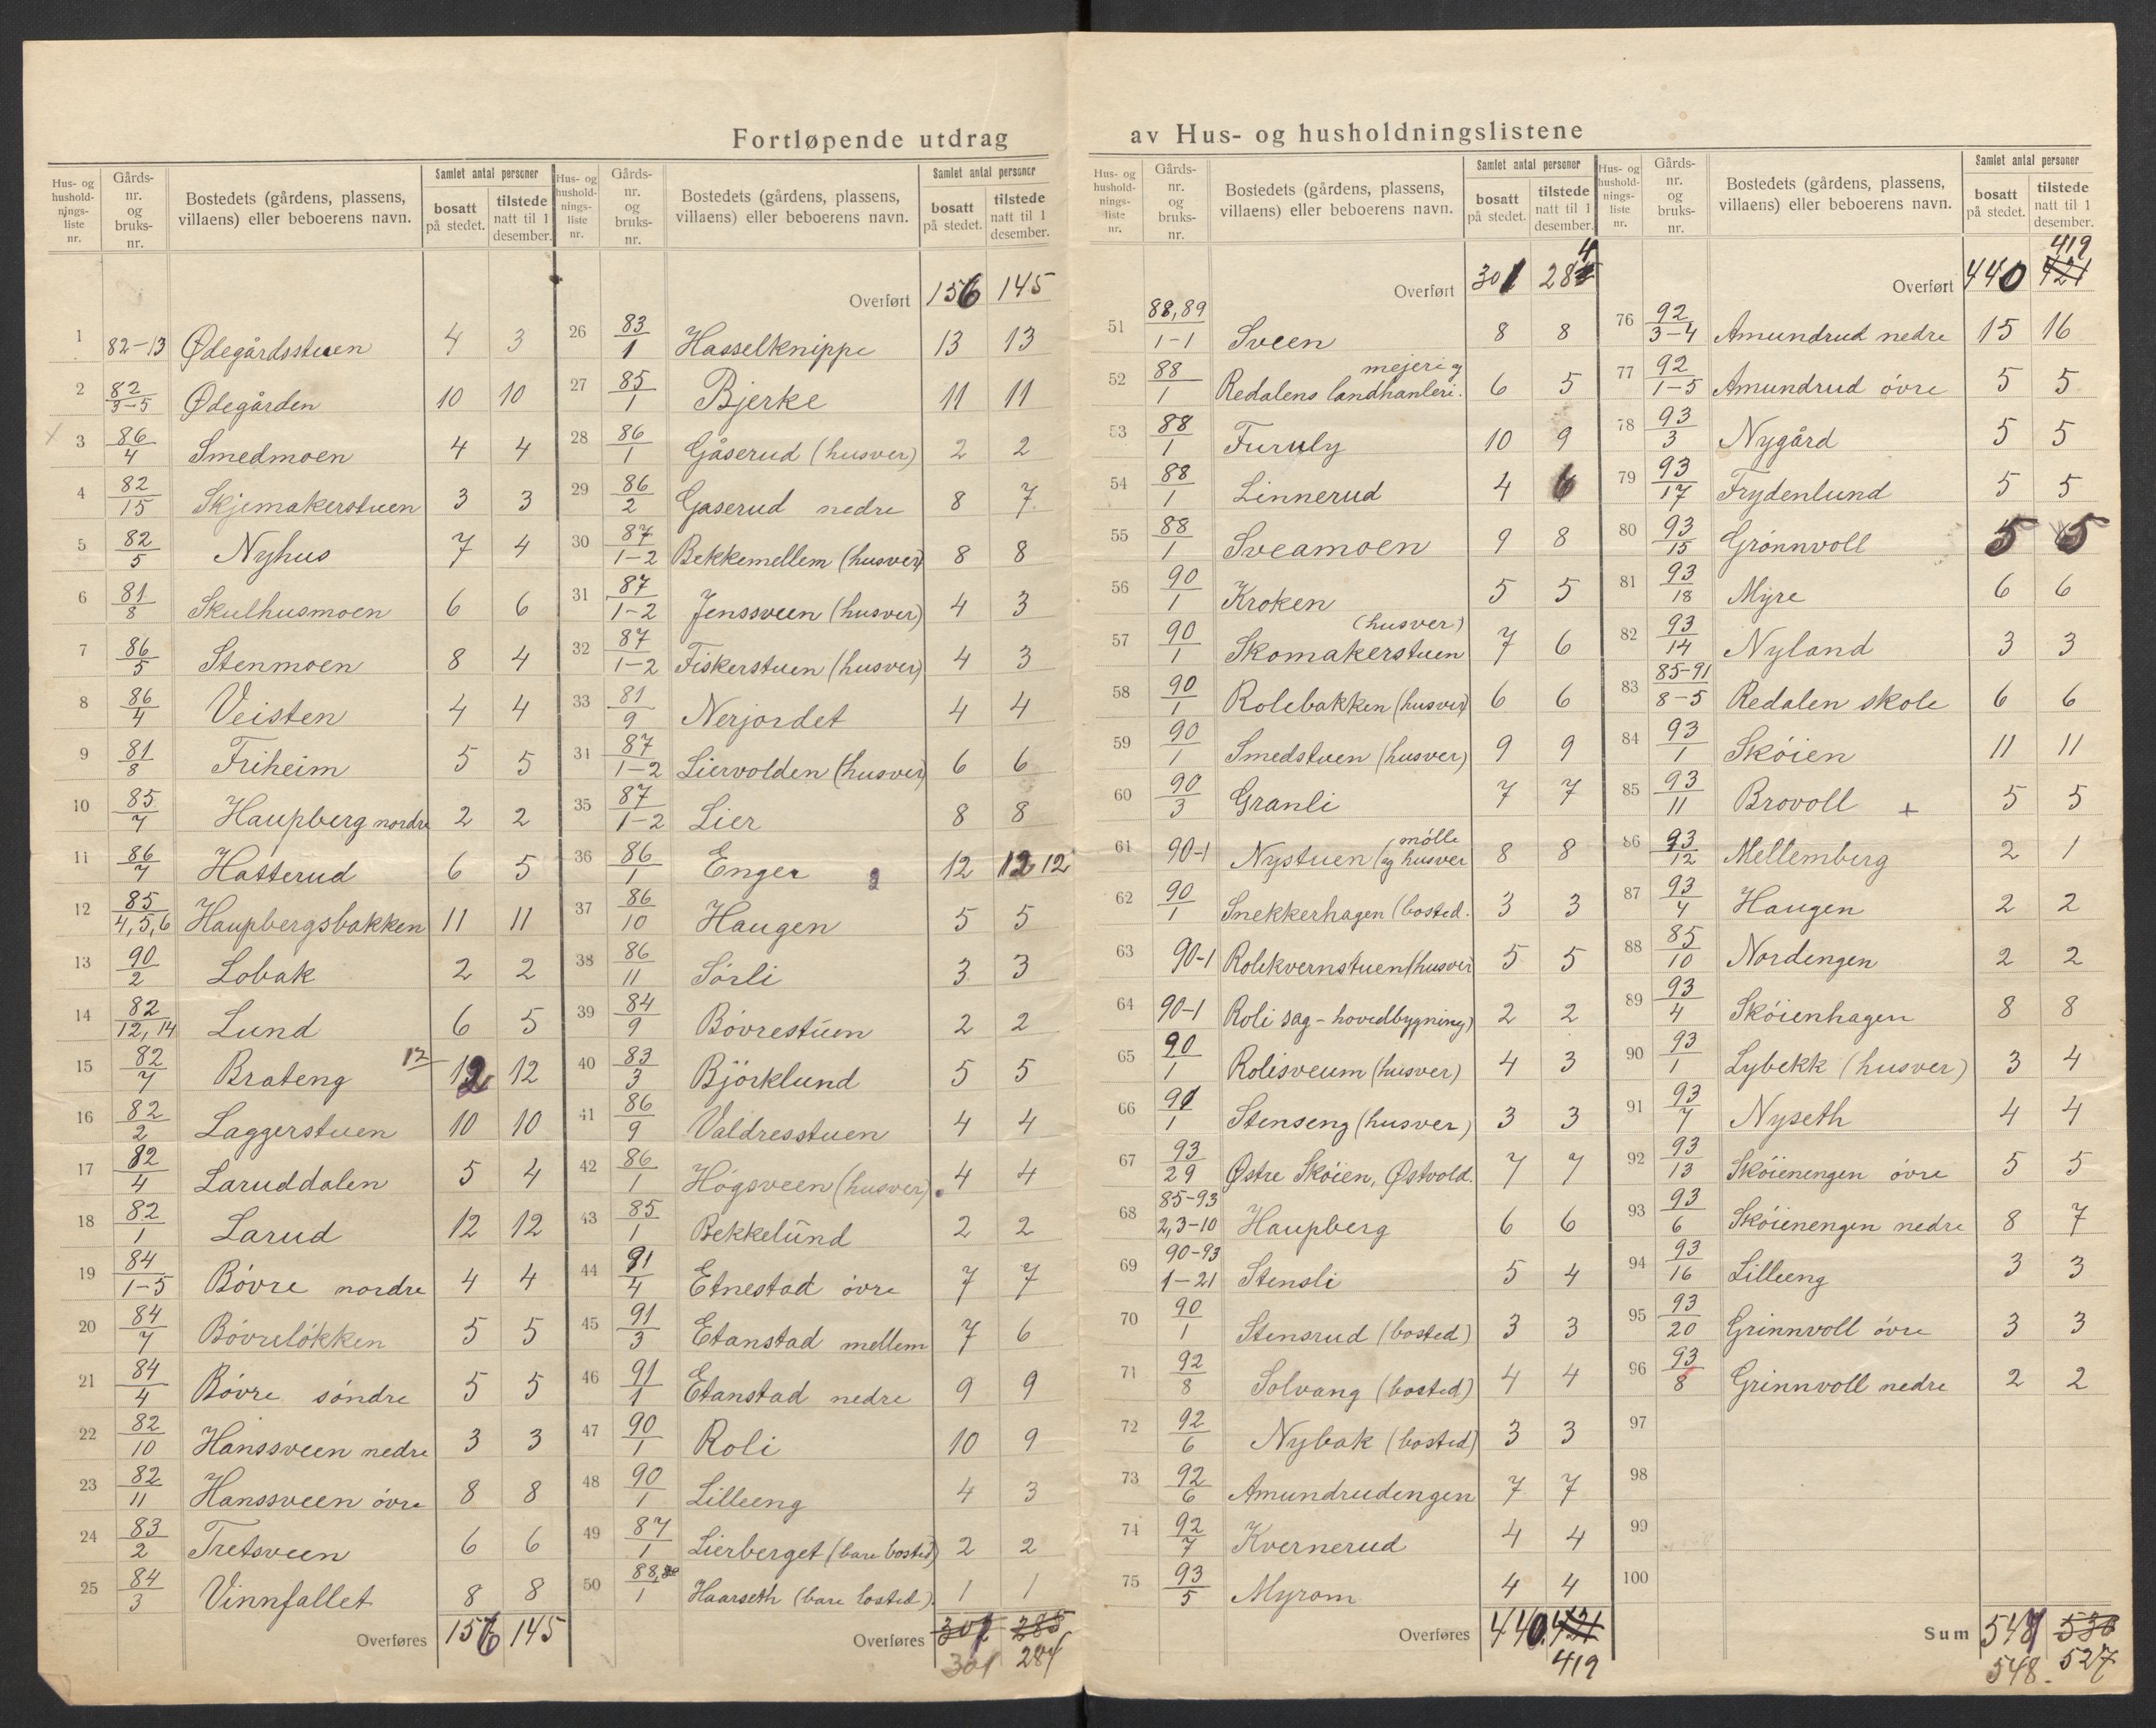 Fortløpende utdrag av Hus- og husholdningslistene
Hus- og hushold-nings-liste nr. | Gårds-nr. og bruks-nr. | Bostedets (gårdens, plassens, villaens) eller beboerens navn. | Samlet antal personer | bosatt på stedet. | tilstede natt til 1 desember.
1 82-13 Ødegårdsstuen 4 3
2 82/3-5 Ødegården 10 10
3 86/4 Smedmoen 4 4
4 82/15 Skjemakerstuen 3 3
5 82/5 Nyhus 7 4
6 81/8 Skulhusmoen 6 6
7 86/5 Stenmoen 8 4
8 86/4 Veisten 4 4
9 81/8 Friheim 5 5
10 85/7 Haupberg nordre 2 2
11 86/7 Hatterud 6 5
12 85/4,5,6 Haupbergsbakken 11 11
13 90/2 Lobak 2 2
14 82/12,14 Lund 6 5
15 82/7 Brateng 12 12 12
16 82/2 Laggerstuen 10 10
17 82/4 Laruddalen 5 4
18 82/1 Larud 12 12
19 84/1-5 Bövre nordre 4 4
20 84/7 Bövrelökken 5 5
21 84/4 Bövre söndre 5 5
22 82/10 Hanssveen nedre 3 3
23 82/11 Hanssveen övre 8 8
24 83/2 Tretsveen 6 6
25 84/3 Vinnfallet 8 8
Overføres 156 145
Hus- og hushold-nings-liste nr. | Gårds-nr. og bruks-nr. | Bostedets (gårdens, plassens, villaens) eller beboerens navn. | Samlet antal personer | bosatt på stedet. | tilstede natt til 1 desember.
Overført 156 145
26 83/1 Hasselknippe 13 13
27 85/1 Bjerke 11 11
28 86/1 Gåserud (husver) 2 2
29 86/2 Gaserud nedre 8 7
30 87/1-2 Bekkemellem (husver) 8 8
31 87/1-2 Jenssveen (husver) 4 3
32 87/1-2 Fiskerstuen (husver) 4 3
33 81/9 Nerjordet 4 4
34 87/1-2 Liervolden (husver) 6 6
35 87/1-2 Lier 8 8
36 86/1 Enger 12 12 12
37 86/10 Haugen 5 5
38 86/11 Sörli 3 3
39 84/9 Bövrestuen 2 2
40 83/3 Björklund 5 5
41 86/9 Valdresstuen 4 4
42 86/1 Högsveen (husver) 4 4
43 85/1 Bekkelund 2 2
44 91/4 Etnestad övre 7 7
45 91/3 Etanstad mellem 7 6
46 91/1 Etanstad nedre 9 9
47 90/1 Roli 10 9
48 90/1 Lilleeng 4 3
49 87/1 Lierberget (bare bosted) 2 2
50 88,/1 Haarseth (bare bosted). 1 1
Overføres 285
301 284
Hus- og hushold-nings-liste nr. | Gårds-nr. og bruks-nr. | Bostedets (gårdens, plassens, villaens) eller beboerens navn. | Samlet antal personer | bosatt på stedet. | tilstede natt til 1 desember.
Overført 301 284
51 88,89/1-1 Sveen 8 8
52 88/1 Redalens mejeri og landhanleri. 6 5
53 88/1 Furuly 10 9
54 88/1 Linnerud 4 6
55 88/1 Sveamoen 9 8
56 90/1 Kroken 5 5
57 90/1 Skomakerstuen (husver) 7 6
58 90/1 Rolebakken (husver) 6 6
59 90/1 Smedstuen (husver) 9 9
60 90/3 Granli 7 7
61 90-1 Nystuen (mølle og husver 8 8
62 90/1 Snekkerhagen (bosted. 3 3
63 90-1 Rolikvernstuen (husver 5 5
64 90-1 Roli sag - hovedbygning) 2 2
65 90/1 Rolisveum (husver) 4 3
66 91/1 Stenseng (husver) 3 3
67 93/29 Østre Sköien, Østvold. 7 7
68 85-93/2,3-10 Haupberg 6 6
69 90-93/1-21 Stensli 5 4
70 90/1 Stensrud (bosted) 3 3
71 92/8 Solvang (bosted) 4 4
72 92/6 Nybak (bosted) 3 3
73 92/6 Amundrudengen 7 7
74 92/7 Kvernerud 4 4
75 93/5 Myrom 4 4
Overføres 440. 421
419
Hus- og hushold-nings-liste nr. | Gårds-nr. og bruks-nr. | Bostedets (gårdens, plassens, villaens) eller beboerens navn. | Samlet antal personer | bosatt på stedet. | tilstede natt til 1 desember.
419
Overført 440 421
76 92/3-4 Amundrud nedre 15 16
77 92/1-5 Amundrud övre 5 5
78 93/3 Nygård 5 5
79 93/17 Frydenlund 5 5
80 93/15 Grönnvoll 5 5
81 93/18 Myre 6 6
82 93/14 Nyland 3 3
83 85-91/8-5 Redalen skole 6 6
84 93/1 Sköien 11 11
85 93/11 Brovoll + 5 5
86 93/12 Mellemberg 2 1
87 93/4 Haugen 2 2
88 85/10 Nordengen 2 2
89 93/4 Sköienhagen 8 8
90 93/1 Lybekk (husver) 3 4
91 93/7 Nyseth 4 4
92 93/13 Sköienengen övre 5 5
93 93/6 Sköienengen nedre 8 7
94 93/16 Lilleeng 3 3
95 93/20 Grinnvoll övre 3 3
96 93/8 Grinnvoll nedre 2 2
97
98
99
100
Sum 530
548. 527